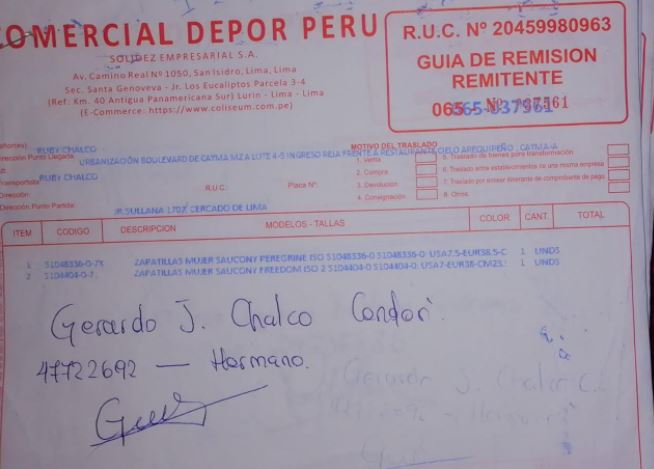 COMERCIAL DEPOR PERU
SOLIDEZ EMPRESARIAL S.A.
Av. Camino Real Nº 1050, San Isidro, Lima, Lima
Sec. Santa Genoveva - Jr. Los Eucaliptos Parcela 3-4
(Ref. Km. 40 Antigua Panamericana Sur) Lurin - Lima - Lima
(E-Commerce: https://www.coliseum.com.pe)
R.U.C. Nº 20459980963
GUIA DE REMISION
REMITENTE
RUBY CHALCO
Dirección Punto Llegada: URBANIZACIÓN BOULEVARD DE CAYMA MZ A LOTE 4-5 INGRESO REJA FRENTE A RESTAURANTE CIELO AREQUIPEÑO
MOTIVO DEL TRASLADO
1. Venta
2. Compra
3. Devolución
4. Consignación
5. Traslado de bienes para transformación
6. Traslado entre establecimientos de una misma empresa
7. Traslado por emisor itinerante de comprobante de pago
8. Otros.
Transportista RUBY CHALCO
Dirección: R.U.C. Placa Nº:
Dirección Punto Partida: CERCADO DE LIMA
ITEM CODIGO DESCRIPCION MODELOS - TALLAS COLOR CANT. TOTAL
1 S1048336-0-7X ZAPATILLAS MUJER SAUCONY PEREGRINE ISO S1048336-0 S1048336-0: USA7.5-EUR38.5-C 1 UNDS
2 S104404-0-7. ZAPATILLAS MUJER SAUCONY FREEDOM ISO 2 S104404-0 S104404-0: USA7-EUR38-CM23. 1 UNDS
Gerardo J. Chalco Condori
47722692 — Hermano.